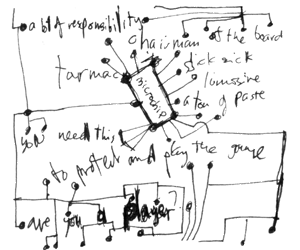 a big responsibility
chairman of the board
sick sick
tarmac
microchip
limousine
a ton of paste
you need this
to protect and play the game
are you a player?